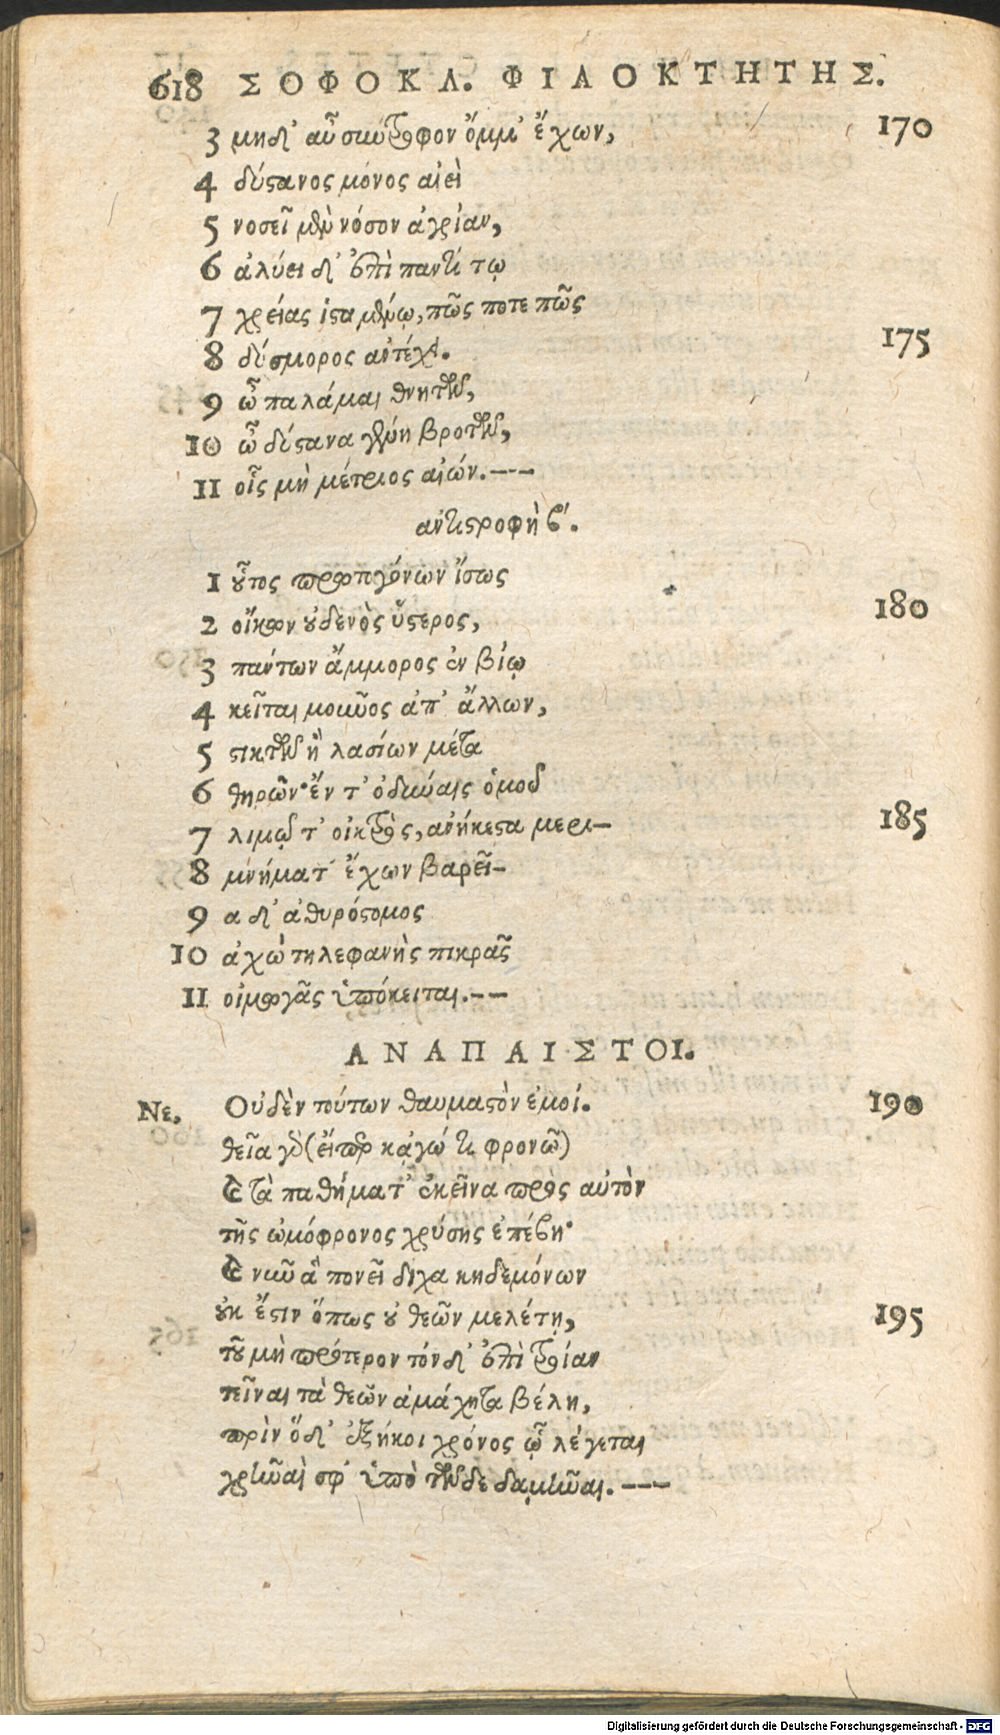 618 ΣΟΦΟΚΛ. ΦΙΛΟΚΤΗΤΗΣ.
3 μηδ' αὖ σύντροφον ὄμμ' ἔχων, 170
4 δύστανος μόνος αἰεὶ
5 νοσεῖ μὲν νόσον ἀγρίαν,
6 ἀλύει δ' ἐπὶ παντί τῳ
7 χρείας ἱσταμένῳ, πῶς ποτε πῶς
8 δύσμορος ἀντέχει. 175
9 ὦ παλάμαι θνητῶν,
10 ὦ δύστανα γένη βροτῶν,
11 οἷς μὴ μέτριος αἰών.---
ἀντιστροφὴ β'.
1 οὗτος πρωτογόνων ἴσως
2 οἴκων οὐδενὸς ὕστερος, 180
3 πάντων ἄμμορος ἐν βίῳ
4 κεῖται μοῦνος ἀπ' ἄλλων,
5 στικτῶν ἢ λασίων μέτα
6 θηρῶν· ἔν τ' ὀδύναις ὁμοῦ
7 λιμῷ τ' οἰκτρὸς, ἀνήκεστα μερι- 185
8 μνήματ' ἔχων βαρεῖ-
9 α δ' ἀθυρόστομος
10 ἀχὼ τηλεφανὴς πικρᾶς
11 οἰμωγᾶς ὑπόκειται.--
ΑΝΑΠΑΙΣΤΟΙ.
Νε. Οὐδὲν τούτων θαυμαστὸν ἐμοί. 190
θεῖα γὰρ (εἴπερ κἀγώ τι φρονῶ)
καὶ τὰ παθήματ' ἐκεῖνα πρὸς αὐτὸν
τῆς ὠμόφρονος χρύσης ἐπέβη·
καὶ νῦν ἃ πονεῖ δίχα κηδεμόνων
οὐκ ἔστιν ὅπως οὐ θεῶν μελέτῃ, 195
τοῦ μὴ πρότερον τόνδ' ἐπὶ τροίαν
τεῖναι τὰ θεῶν ἀμάχητα βέλη,
πρὶν ὅδ' ἐξήκοι χρόνος ᾧ λέγεται
χρῆναί σφ' ὑπὸ τῶνδε δαμῆναι.---
Digitalisierung gefördert durch die Deutsche Forschungsgemeinschaft - DFG